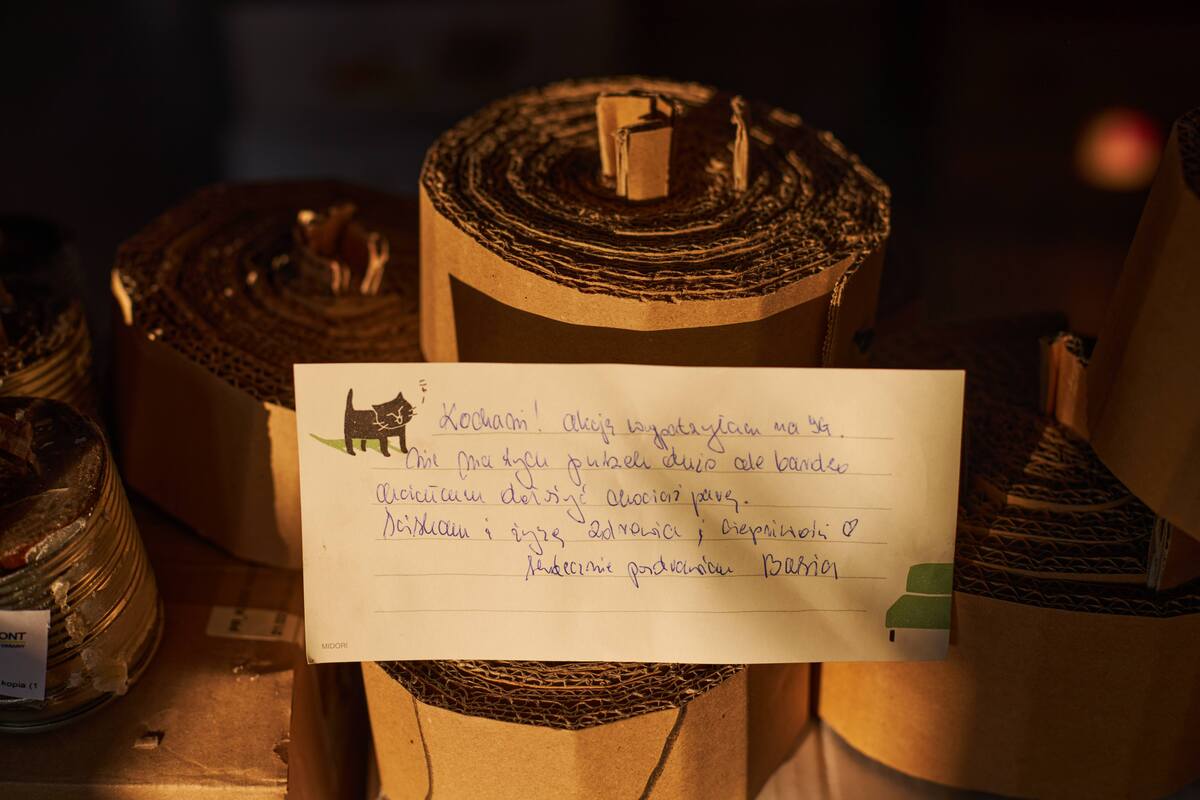 Kochani! Akcję wypatrzyłam na IG.
Nie ma tych puszek dużo ale bardzo
chciałam dorzucić chociaż parę.
Ściskam i życzę zdrowia i cierpliwości ♡
Serdecznie pozdrawiam Basia
MIDORI
ONT
kopia (1